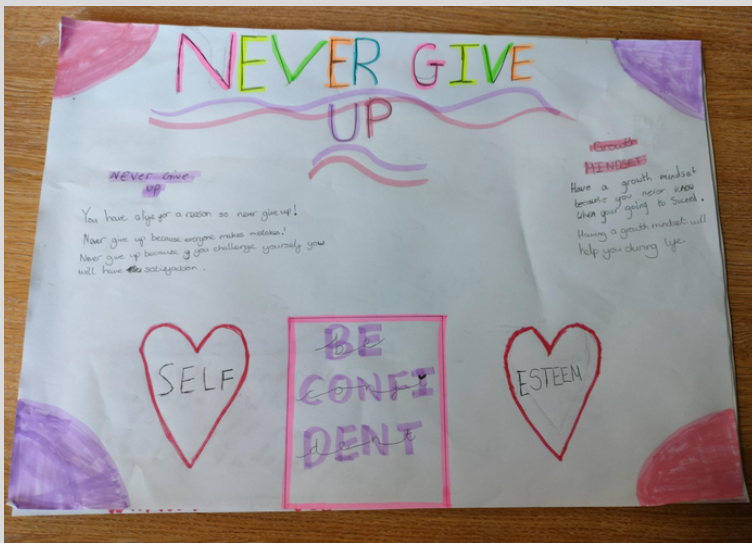 NEVER GIVE
UP
NEVER GIVE
UP
You have a life for a reason so never give up!
Never give up because everyone makes mistakes!
Never give up because if you challenge yourself you
will have satisfaction.
Growth
MINDSET
Have a growth mindset
because you never know
when your going to suceed.
Having a growth mindset will
help you during life.
SELF
BE
CONFI
DENT
be
confi
dent
ESTEEM